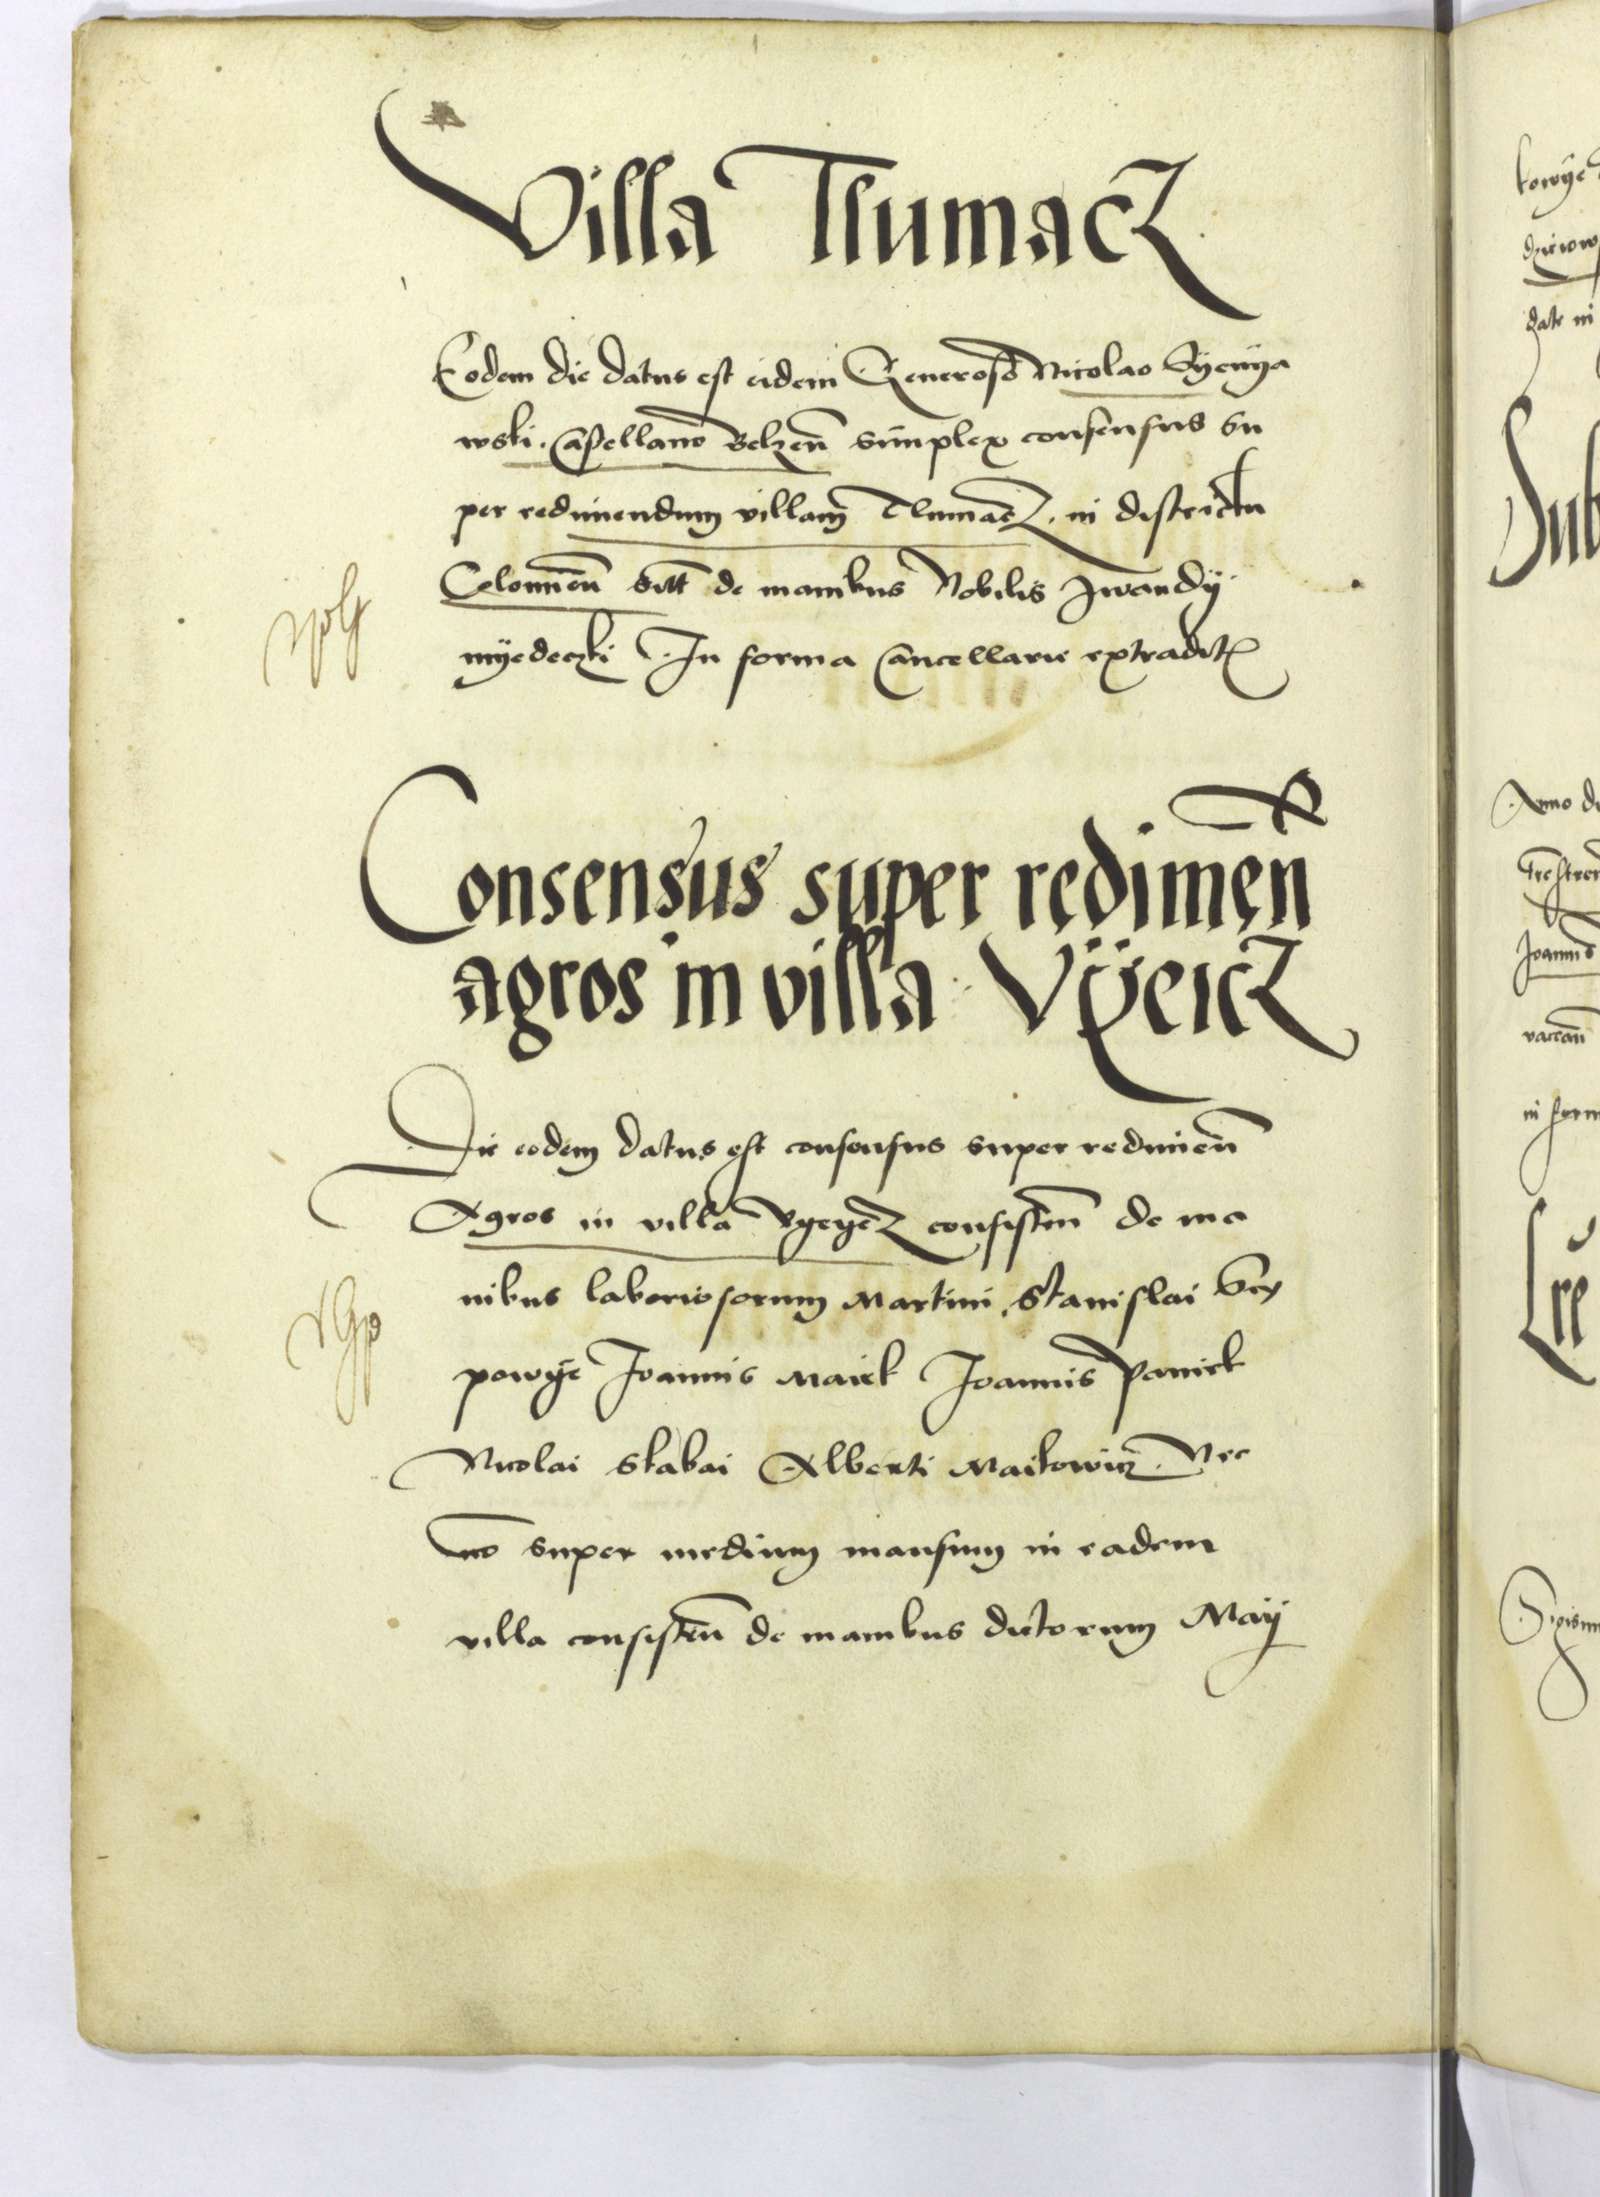 Villa Tlumacz
Eodem die datus est eidem Generoso Nicolao Syenya
wski. Castellano Belzen̄ simplex consensus su
per redimendum villam Tlumacz. in districtu
Colomien̄ sitt̄ de manibus Nobilis Iwan dÿ
myedeczki In forma Cancellarie extradit
Consensus super redimēn
agros in villa Vÿeicz
Die eodem datus est consensus super redimen̄
Agros in villa Vyeyecz consisten̄ de ma
nibus laboriosorum Martini, Stanislai
powye Joannis Maiek Joannis Paniek
Nicolai Skabai Alberti Maikowicz Nec
no super medium mansum in eadem
villa consisten̄ de manibus dictorum Maÿ
kowÿe
date in
Sub
Anno
Joannis
in form
Lre